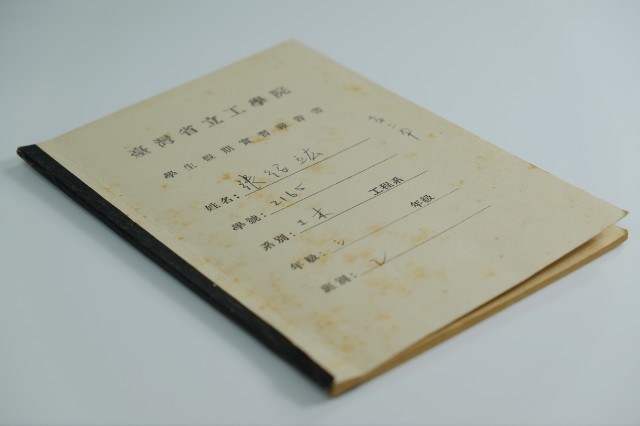 臺灣省立工學院
學生假期實習報告書
姓名：張
學號：2165
系別：土木工程系
年級：三年級
班別：乙